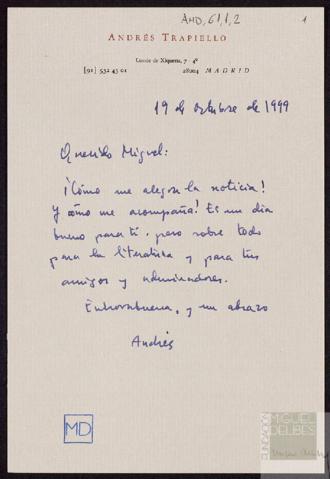 AMD, 61, 1, 2
1
ANDRÉS TRAPIELLO
Conde de Xiquena, 7 - 4º
(91) 532 43 01 28004 MADRID
19 de octubre de 1999
Querido Miguel:
¡Cómo me alegra la noticia!
Y cómo me acompaña! Es un día
bueno para ti, pero sobre todo
para la literatura y para tus
amigos y admiradores.
Enhorabuena, y un abrazo
Andrés
MD
FUNDACIÓN
MIGUEL
DELIBES